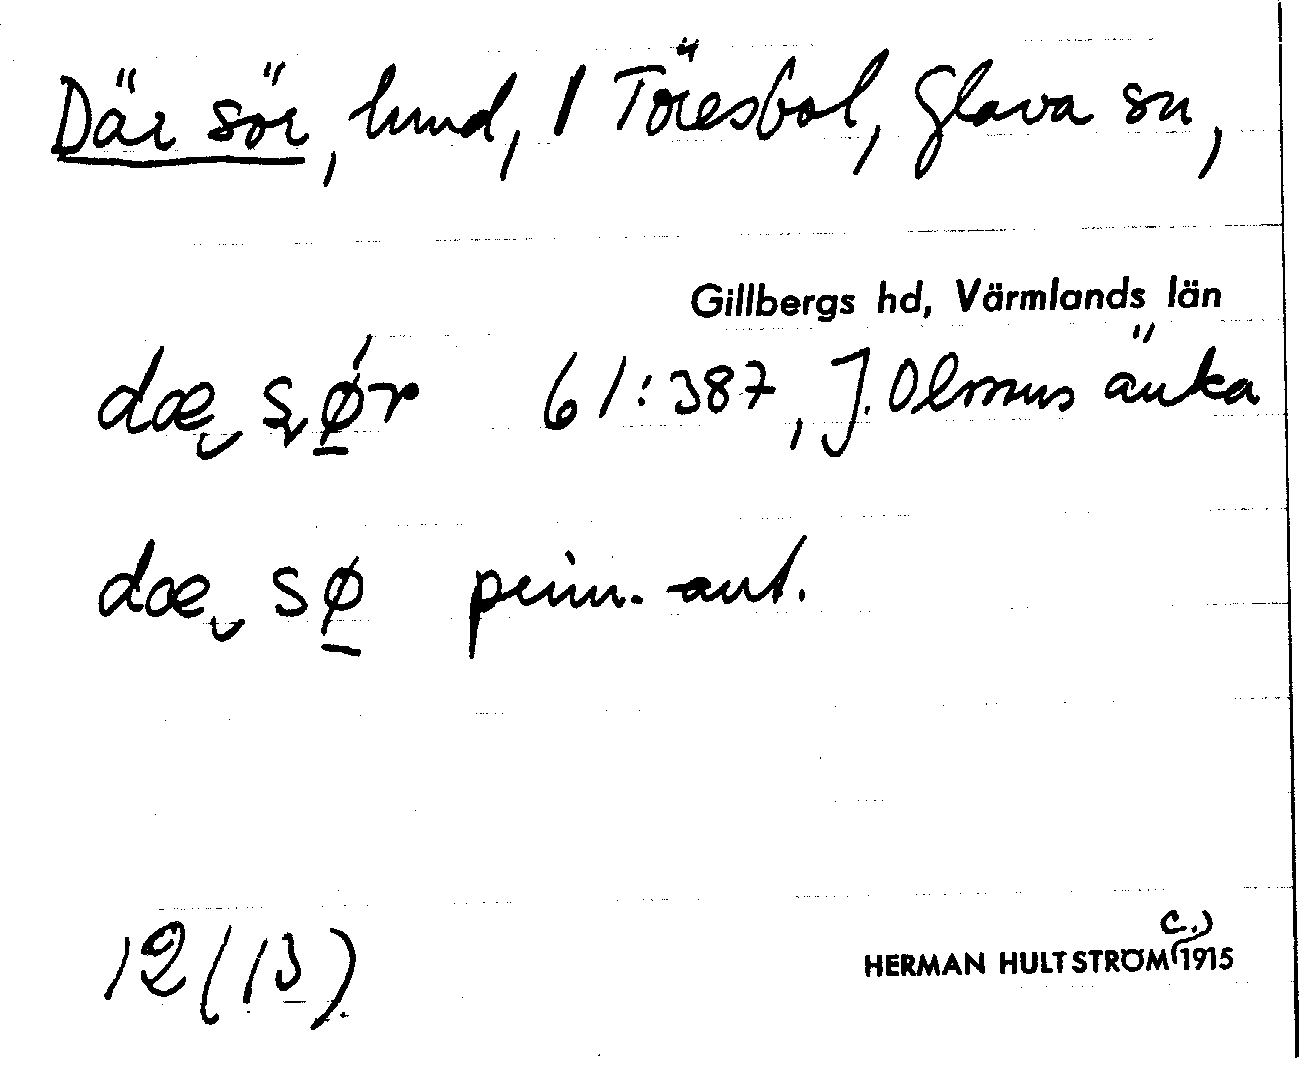 Där sör, hmd, 1 Töresbol, Glava sn,
Gillbergs hd, Värmlands län
dæ sø̱r 61:387, J. Olssons änka
dæ sø̱ prim. ant.
12(13)
HERMAN HULTSTRÖM c.) 1915